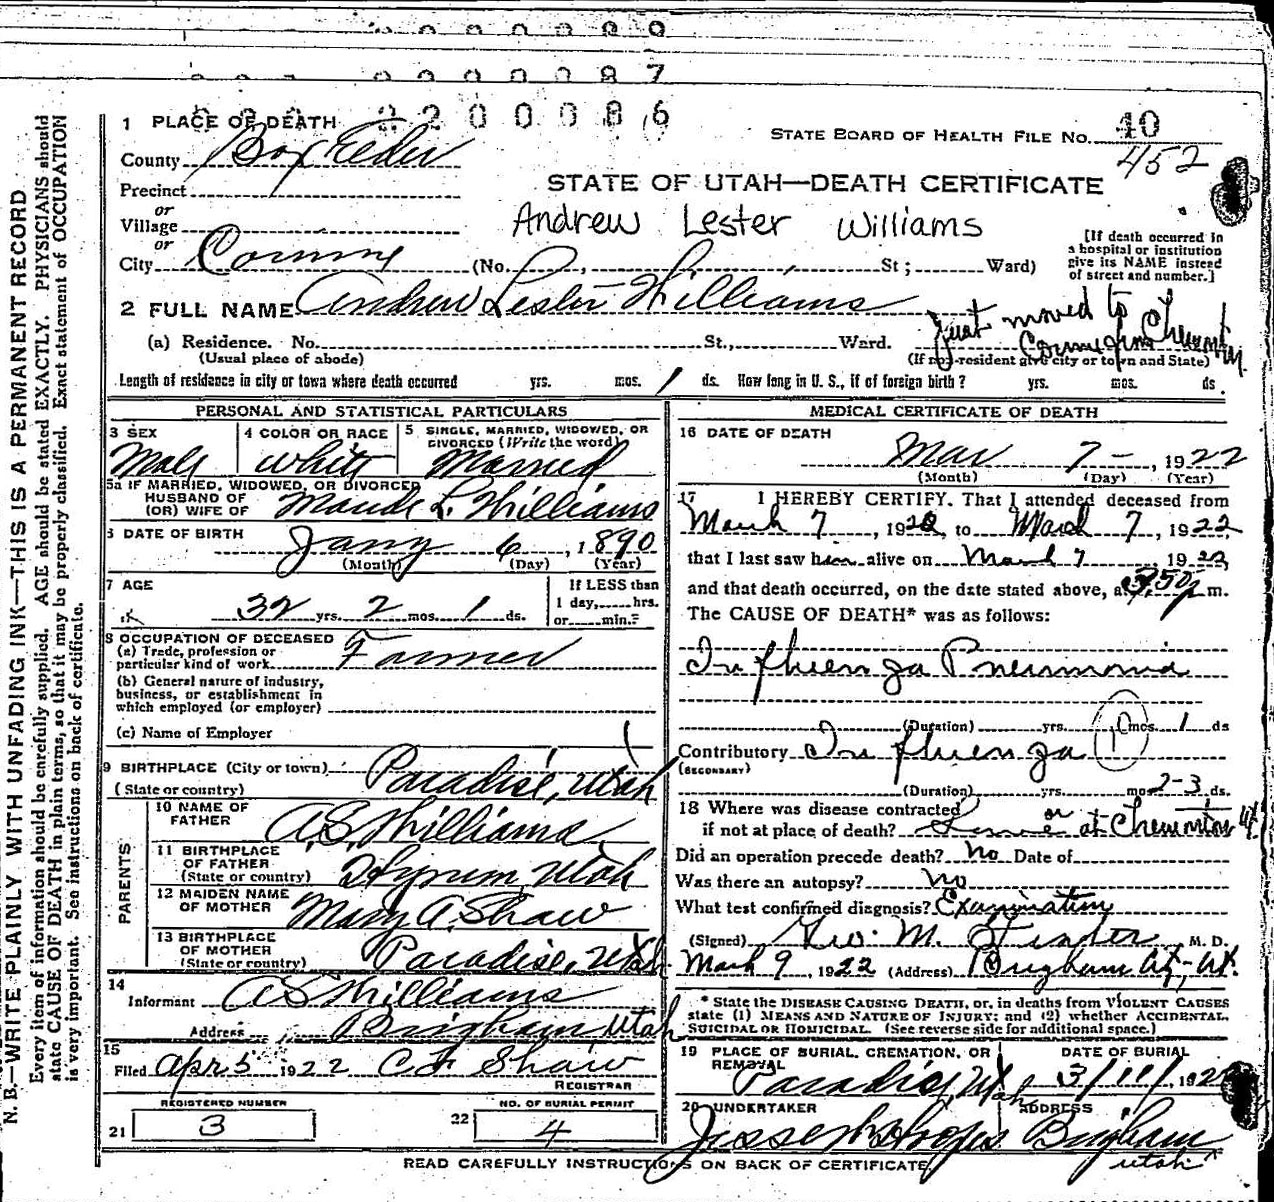 2200086
1 PLACE OF DEATH
STATE BOARD OF HEALTH FILE NO. 40
452
County Box Elder
Precinct
or
Village
or
City Corinne (No. , St; Ward)
STATE OF UTAH—DEATH CERTIFICATE
Andrew Lester Williams
[If death occurred in
a hospital or institution
give its NAME instead
of street and number.]
2 FULL NAME Andrew Lester Williams
Just moved to
Corinne from
(a) Residence. No. St., Ward.
(Usual place of abode)
(If non-resident give city or town and State)
Length of residence in city or town where death occurred yrs. mos. 1 ds. How long in U. S., if of foreign birth? yrs. mos. ds.
PERSONAL AND STATISTICAL PARTICULARS
3 SEX
Male
4 COLOR OR RACE
White
5 SINGLE, MARRIED, WIDOWED, OR
DIVORCED (Write the word)
Married
5a IF MARRIED, WIDOWED, OR DIVORCED
HUSBAND OF
(OR) WIFE OF Maude L. Williams
6 DATE OF BIRTH
Jany 6, 1890
(Month) (Day) (Year)
7 AGE
32 yrs. 2 mos. 1 ds.
If LESS than
1 day, hrs.
or min.?
8 OCCUPATION OF DECEASED
(a) Trade, profession or
particular kind of work Farmer
(b) General nature of industry,
business, or establishment in
which employed (or employer)
(c) Name of Employer
9 BIRTHPLACE (City or town)
(State or country) Paradise, Utah
PARENTS
10 NAME OF
FATHER A.S. Williams
11 BIRTHPLACE
OF FATHER
(State or country) Hyrum, Utah
12 MAIDEN NAME
OF MOTHER Mary A. Shaw
13 BIRTHPLACE
OF MOTHER
(State or country) Paradise, Utah
14
Informant A S Williams
Address Brigham Utah
15
Filed Apr 5 1922 C F Shaw
REGISTRAR
REGISTERED NUMBER
21 3
NO. OF BURIAL PERMIT
22 4
MEDICAL CERTIFICATE OF DEATH
16 DATE OF DEATH
Mar 7-, 1922
(Month) (Day) (Year)
17 I HEREBY CERTIFY. That I attended deceased from
March 7, 1922, to March 7, 1922,
that I last saw him alive on March 7 1922,
and that death occurred, on the date stated above, at 3:50 p m.
The CAUSE OF DEATH* was as follows:
Influenza Pneumonia
(Duration) yrs. mos. 1 ds
Contributory Influenza
(SECONDARY)
(Duration) yrs. mos 2-3 ds.
18 Where was disease contracted
if not at place of death? or at
Did an operation precede death? No Date of
Was there an autopsy? No
What test confirmed diagnosis? Examination
(Signed) Geo. M. M. D.
March 9, 1922 (Address) Brigham Cy, Ut.
* State the DISEASE CAUSING DEATH, or, in deaths from VIOLENT CAUSES
state (1) MEANS AND NATURE OF INJURY; and (2) whether ACCIDENTAL,
SUICIDAL OR HOMICIDAL. (See reverse side for additional space.)
19 PLACE OF BURIAL, CREMATION, OR
REMOVAL
Paradise, Utah
DATE OF BURIAL
20 UNDERTAKER
ADDRESS
Brigham
Utah
READ CAREFULLY INSTRUCTIONS ON BACK OF CERTIFICATE
N. B.—WRITE PLAINLY WITH UNFADING INK—THIS IS A PERMANENT RECORD
Every item of information should be carefully supplied. AGE should be stated EXACTLY. PHYSICIANS should
state CAUSE OF DEATH in plain terms, so that it may be properly classified. Exact statement of OCCUPATION
is very important. See instructions on back of certificate.